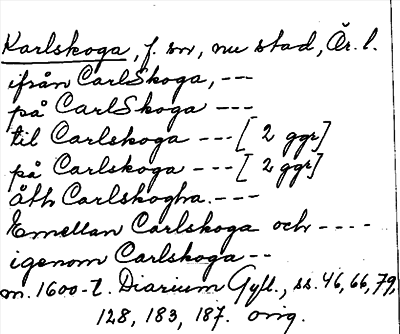 Karlskoga, f. sn, nu stad, Ör. l.
ifrån CarlSkoga, ---
på CarlSkoga ---
til Carlskoga --- [2 ggr]
på Carlskoga --- [2 ggr]
åth Carlskogha. ---
Emellan Carlskoga och ----
igenom Carlskoga --
m. 1600-t. Diarium Gyll., ss. 46, 66, 79,
128, 183, 187. orig.